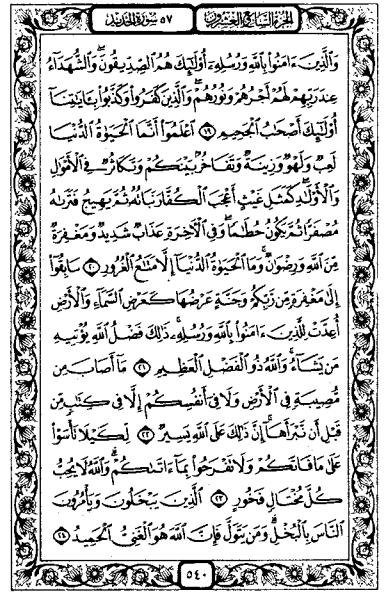 الجزء السابع والعشرون ٥٧ سورة الحديد
وَالَّذِينَ ءَامَنُوا بِاللَّهِ وَرُسُلِهِۦٓ أُولَٰٓئِكَ هُمُ الصِّدِّيقُونَ ۖ وَالشُّهَدَآءُ
عِندَ رَبِّهِمْ لَهُمْ أَجْرُهُمْ وَنُورُهُمْ ۖ وَالَّذِينَ كَفَرُوا وَكَذَّبُوا بِـَٔايَٰتِنَآ
أُولَٰٓئِكَ أَصْحَٰبُ الْجَحِيمِ ١٩ اعْلَمُوٓا أَنَّمَا الْحَيَوٰةُ الدُّنْيَا
لَعِبٌ وَلَهْوٌ وَزِينَةٌ وَتَفَاخُرٌۢ بَيْنَكُمْ وَتَكَاثُرٌ فِى الْأَمْوَٰلِ
وَالْأَوْلَٰدِ ۖ كَمَثَلِ غَيْثٍ أَعْجَبَ الْكُفَّارَ نَبَاتُهُۥ ثُمَّ يَهِيجُ فَتَرَىٰهُ
مُصْفَرًّا ثُمَّ يَكُونُ حُطَٰمًا ۖ وَفِى الْءَاخِرَةِ عَذَابٌ شَدِيدٌ وَمَغْفِرَةٌ
مِّنَ اللَّهِ وَرِضْوَٰنٌ ۚ وَمَا الْحَيَوٰةُ الدُّنْيَآ إِلَّا مَتَٰعُ الْغُرُورِ ٢٠ سَابِقُوٓا
إِلَىٰ مَغْفِرَةٍ مِّن رَّبِّكُمْ وَجَنَّةٍ عَرْضُهَا كَعَرْضِ السَّمَآءِ وَالْأَرْضِ
أُعِدَّتْ لِلَّذِينَ ءَامَنُوا بِاللَّهِ وَرُسُلِهِۦ ۚ ذَٰلِكَ فَضْلُ اللَّهِ يُؤْتِيهِ
مَن يَشَآءُ ۚ وَاللَّهُ ذُو الْفَضْلِ الْعَظِيمِ ٢١ مَآ أَصَابَ مِن
مُّصِيبَةٍ فِى الْأَرْضِ وَلَا فِىٓ أَنفُسِكُمْ إِلَّا فِى كِتَٰبٍ مِّن
قَبْلِ أَن نَّبْرَأَهَآ ۚ إِنَّ ذَٰلِكَ عَلَى اللَّهِ يَسِيرٌ ٢٢ لِّكَيْلَا تَأْسَوْا
عَلَىٰ مَا فَاتَكُمْ وَلَا تَفْرَحُوا بِمَآ ءَاتَىٰكُمْ ۗ وَاللَّهُ لَا يُحِبُّ
كُلَّ مُخْتَالٍ فَخُورٍ ٢٣ الَّذِينَ يَبْخَلُونَ وَيَأْمُرُونَ
النَّاسَ بِالْبُخْلِ ۗ وَمَن يَتَوَلَّ فَإِنَّ اللَّهَ هُوَ الْغَنِىُّ الْحَمِيدُ ٢٤
٥٤٠